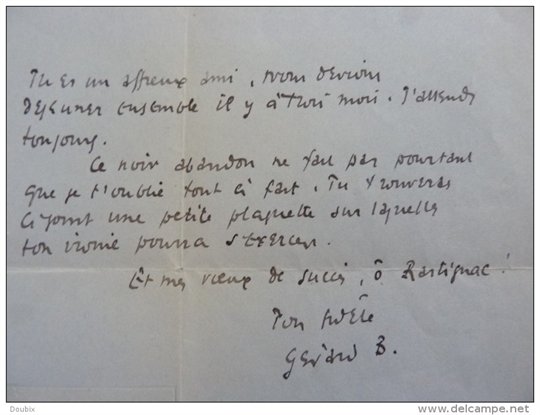 Tu es un affreux ami, nous devions
déjeuner ensemble il y a trois mois. J'attends
toujours.
Ce noir abandon ne fait pas pourtant
que je t'oublie tout à fait. Tu trouveras
ci-joint une petite plaquette sur laquelle
ton ironie pourra s'exercer.
Et mes vœux de succès, ô Rastignac !
Ton fidèle
Gérard B.
Doubix
www.delcampe.net